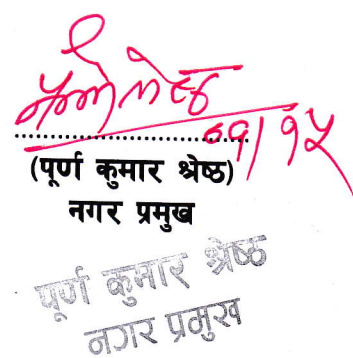 ०९/१५
(पूर्ण कुमार श्रेष्ठ)
नगर प्रमुख
पूर्ण कुमार श्रेष्ठ
नगर प्रमुख